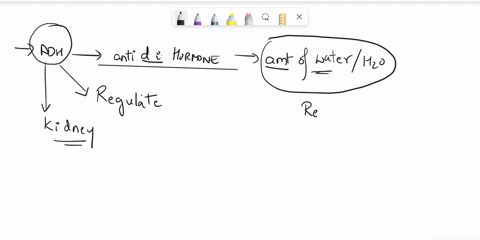 ADH → anti di HORMONE → amt of water/H2O
Regulate
Re
Kidney